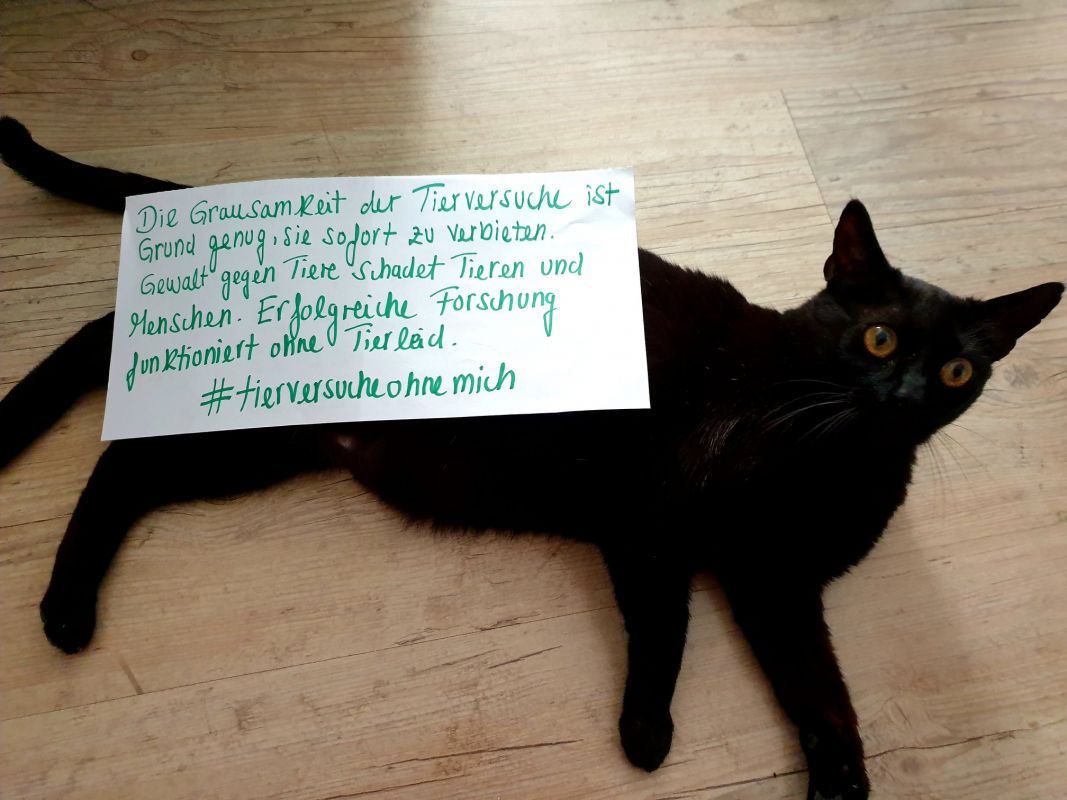 Die Grausamkeit der Tierversuche ist
Grund genug, sie sofort zu verbieten.
Gewalt gegen Tiere schadet Tieren und
Menschen. Erfolgreiche Forschung
funktioniert ohne Tierleid.
#tierversucheohnemich